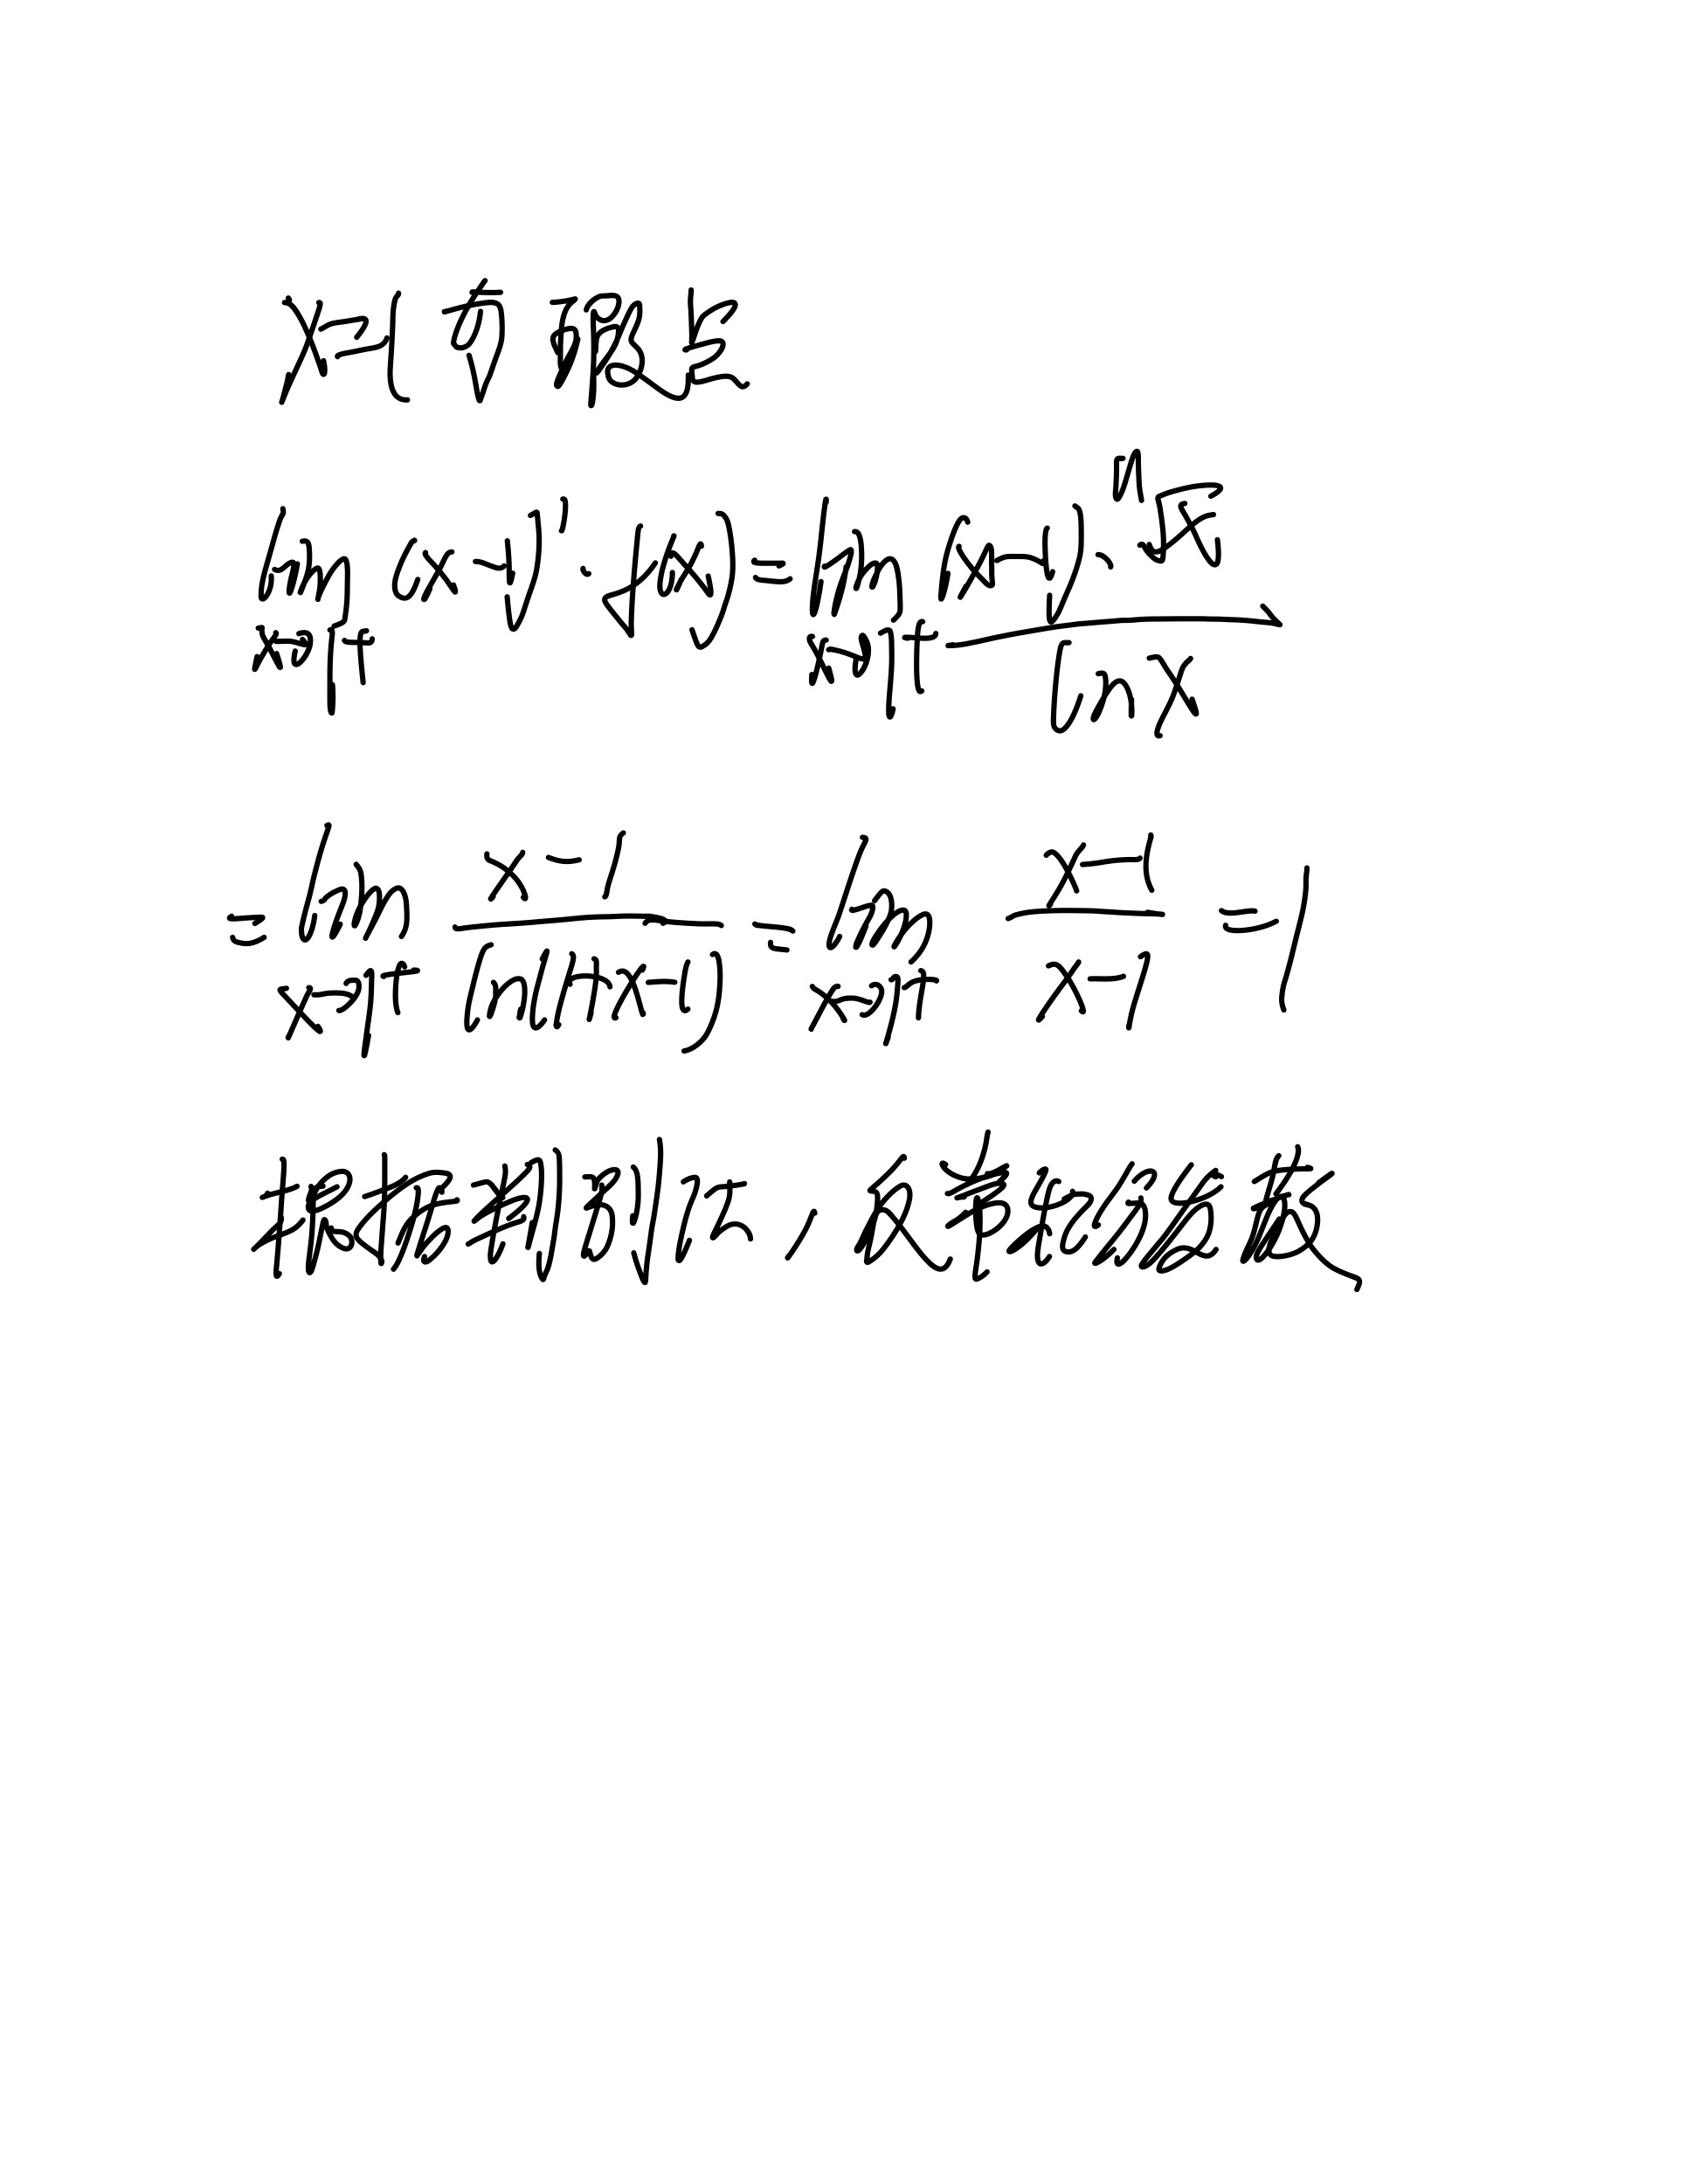 x=1 为瑕点
lim x→1⁺ (x-1)¹·f(x) = lim x→1⁺ (x-1)·ⁿ√x / ln x
= lim x→1⁺ (x-1) / ln(1+x-1) = lim x→1⁺ (x-1) / (x-1) = 1
根据判别法，反常积分发散